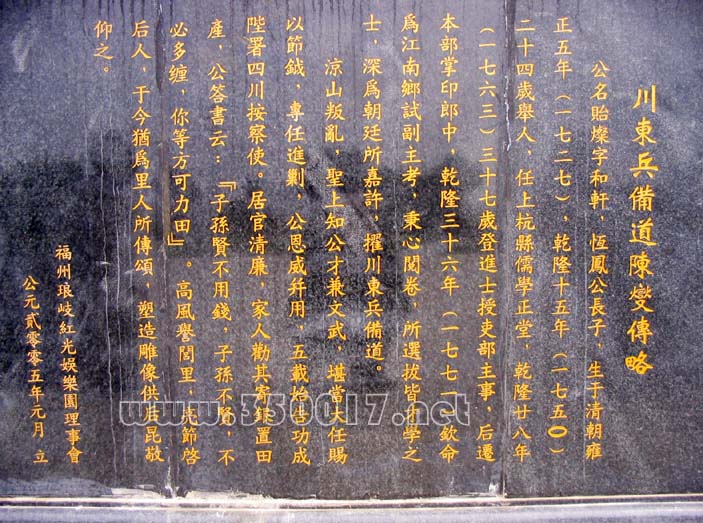 川東兵備道陳燮傳略
公名貽燦字和軒，恆鳳公長子，生于清朝雍
正五年（一七二七），乾隆十五年（一七五〇）
二十四歲舉人，任上杭縣儒學正堂，乾隆廿八年
（一七六三）三十七歲登進士授吏部主事，后遷
本部掌印郎中，乾隆三十六年（一七七一）欽命
爲江南鄉試副主考，秉心閱卷，所選拔皆力學之
士，深爲朝廷所嘉許，擢川東兵備道。
涼山叛亂，聖上知公才兼文武，堪當大任賜
以節鉞，專任進剿，公恩威幷用，五載始告功成
陛署四川按察使。居官清廉，家人勸其寄銀置田
產，公答書云：『子孫賢不用錢，子孫不賢，不
必多纏，你等方可力田』。高風譽閭里，亮節啓
后人，于今猶爲里人所傳頌，塑造雕像供后昆敬
仰之。
福州琅岐紅光娛樂園理事會
公元貳零零五年元月 立
www.350017.net